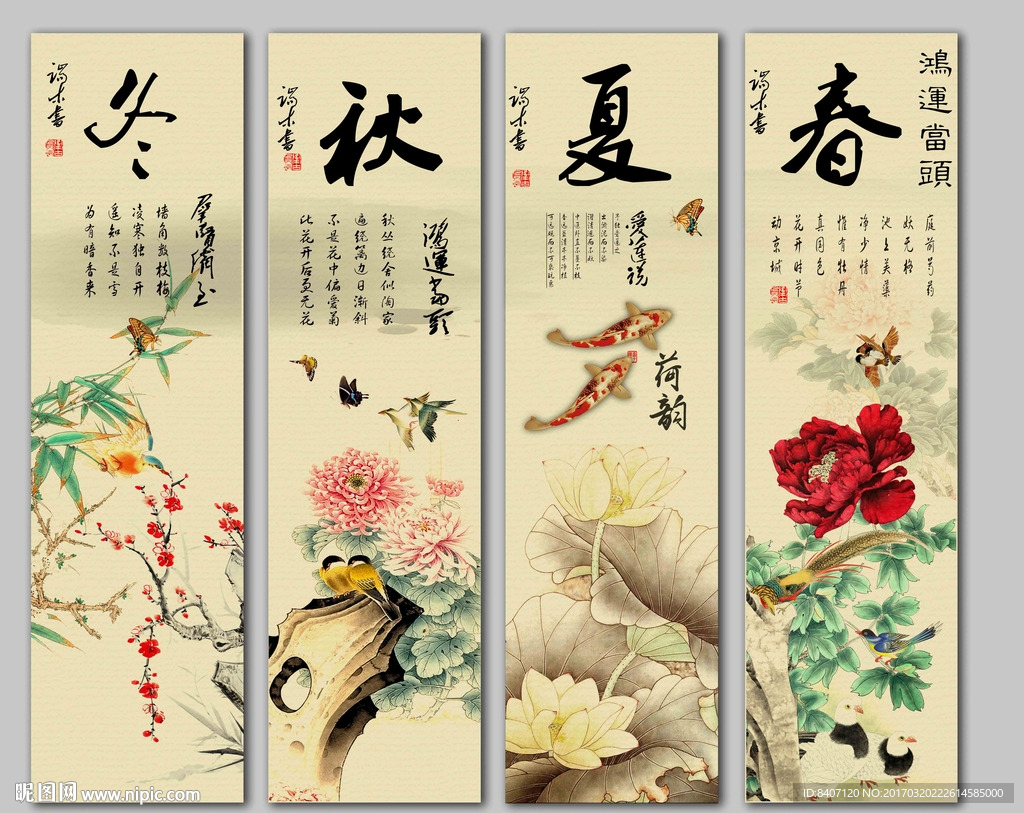 鴻運當頭
春
端木書
庭前芍药
妖无格
池上芙蕖
净少情
惟有牡丹
真国色
花开时节
动京城
夏
端木書
爱莲说
不蔓不枝
荷韵
秋
端木書
鸿運當頭
秋丛绕舍似陶家
遍绕篱边日渐斜
不是花中偏爱菊
此花开后更无花
冬
端木書
墙角数枝梅
凌寒独自开
遥知不是雪
为有暗香来
昵图网 www.nipic.com
ID:8407120 NO:20170320222614585000